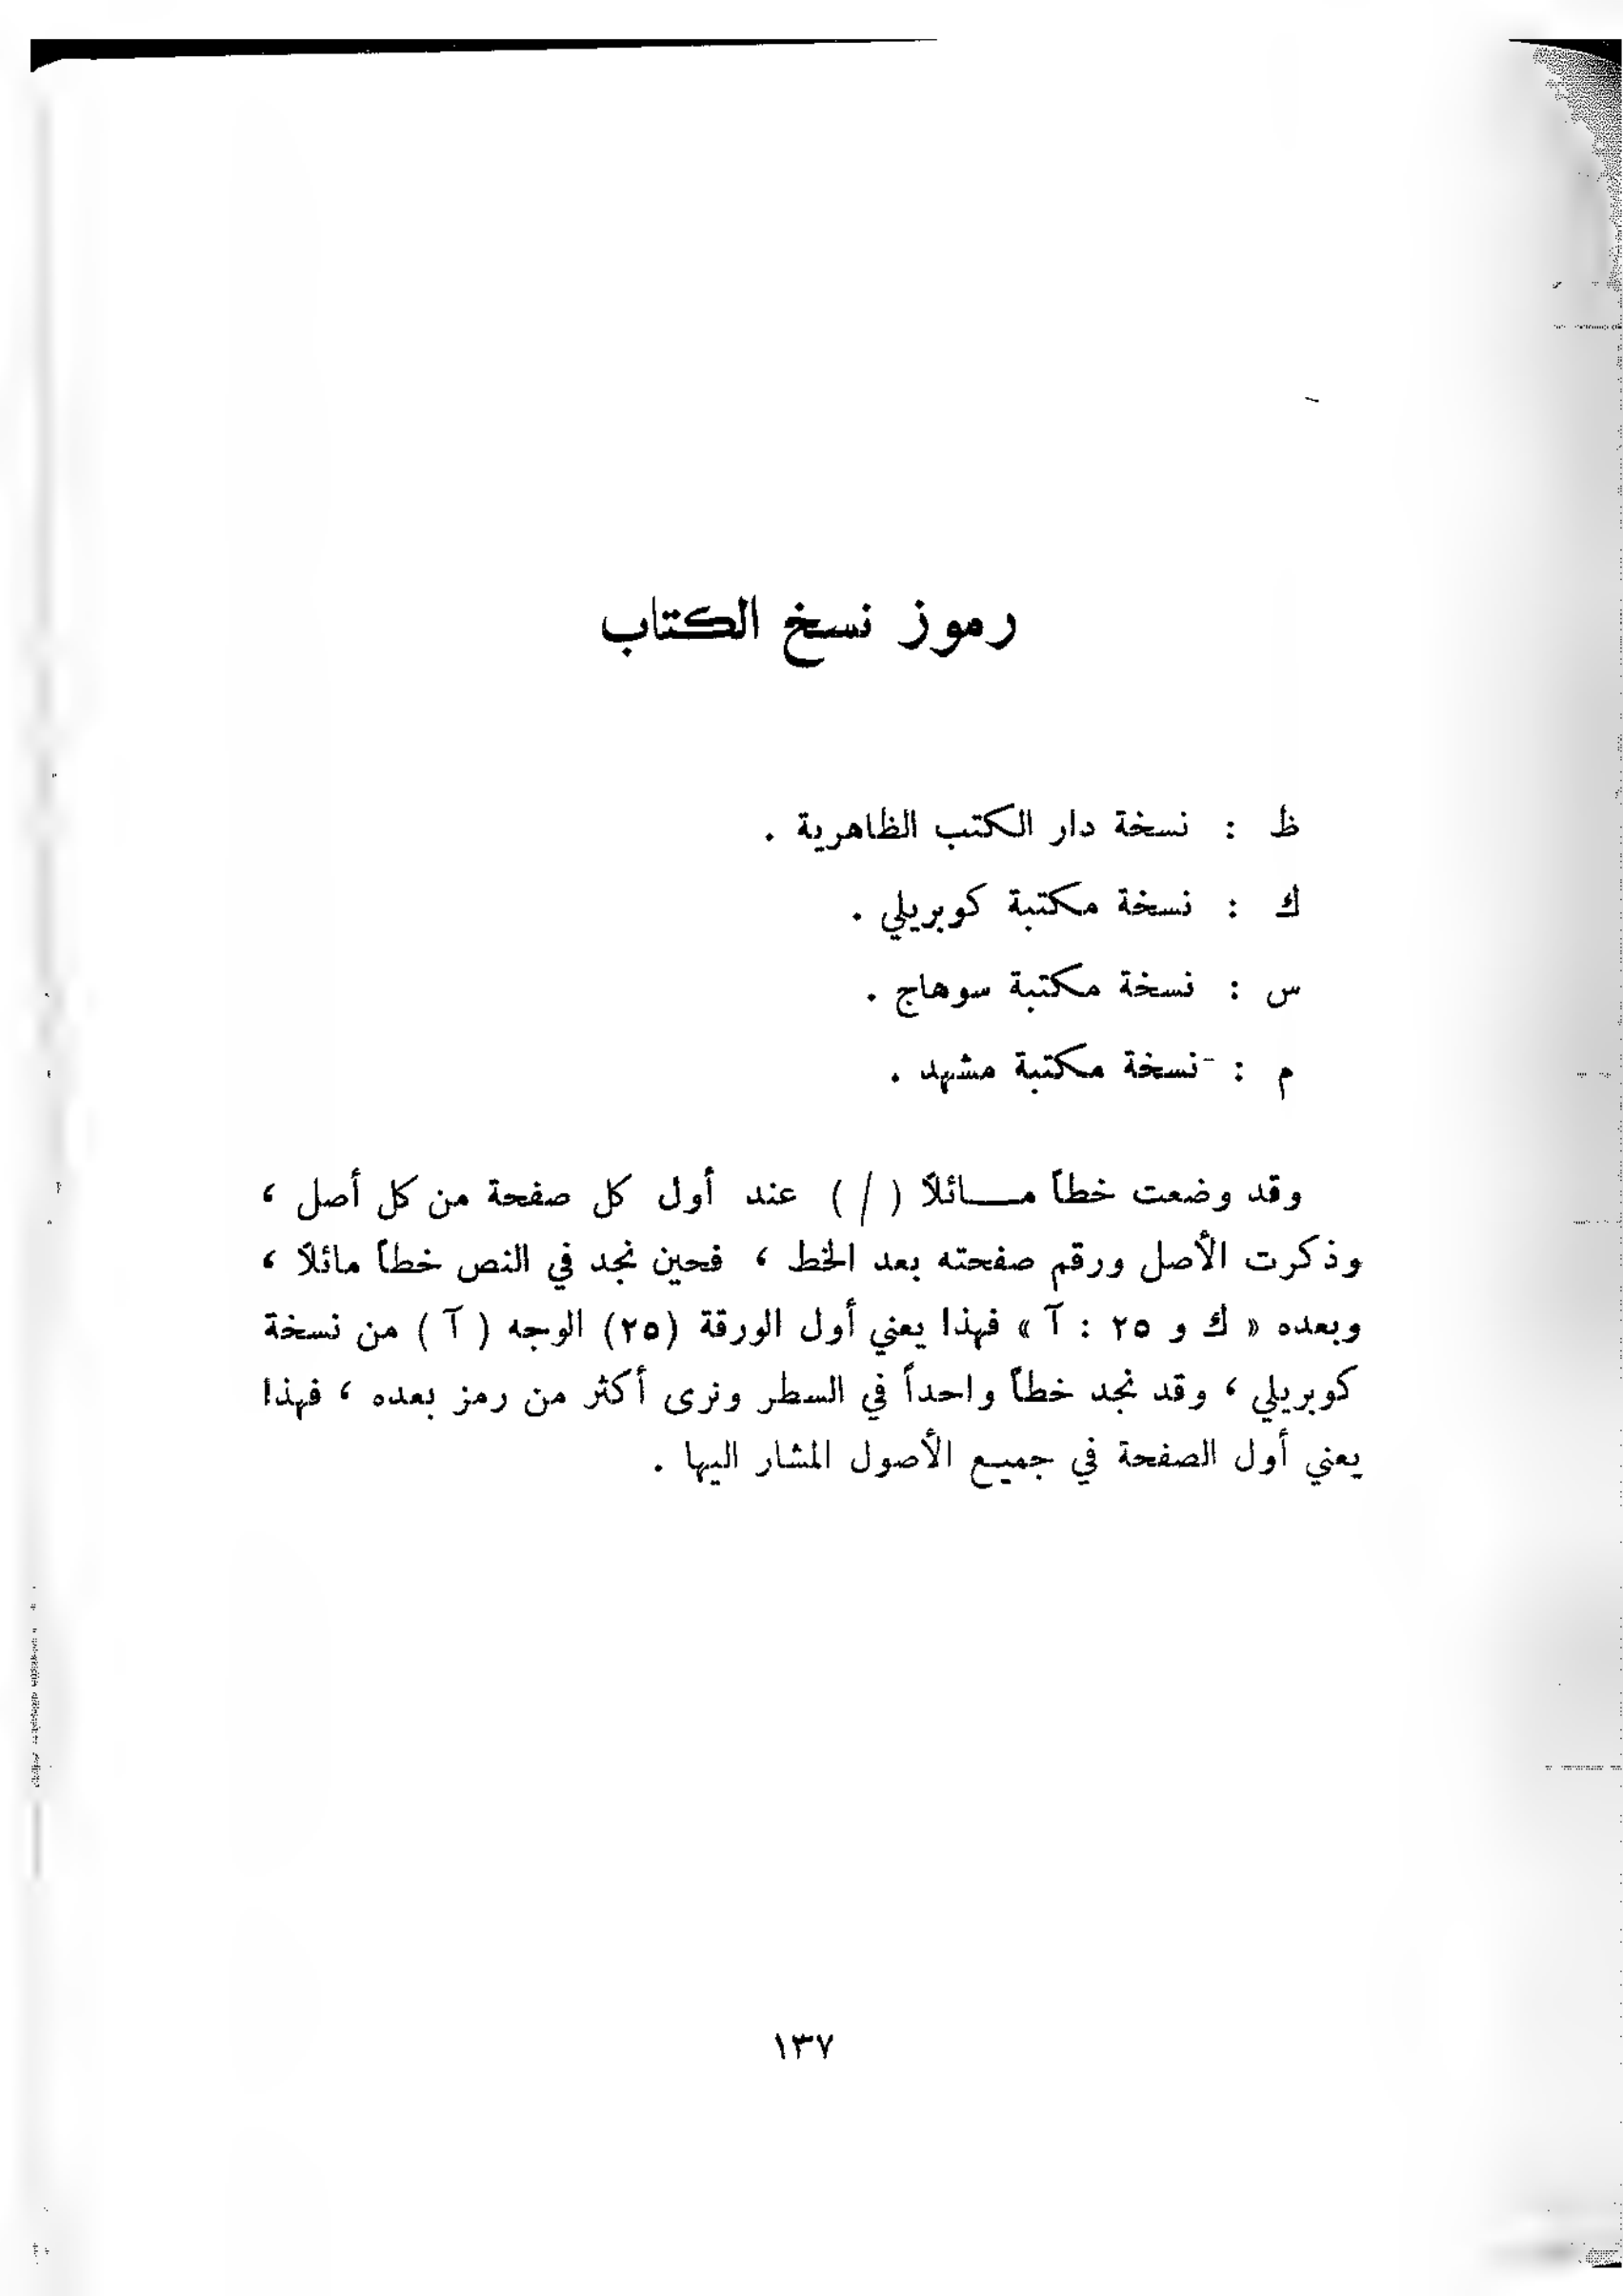 رموز نسخ الكتاب
ظ : نسخة دار الكتب الظاهرية .
ك : نسخة مكتبة كوبريلي .
س : نسخة مكتبة سوهاج .
م : نسخة مكتبة مشهد .
وقد وضعت خطاً مــائلاً ( / ) عند أول كل صفحة من كل أصل ،
وذكرت الأصل ورقم صفحته بعد الخط ، فحين نجد في النص خطاً مائلاً ،
وبعده « ك و ٢٥ : آ » فهذا يعني أول الورقة (٢٥) الوجه ( آ ) من نسخة
كوبريلي ، وقد نجد خطاً واحداً في السطر ونرى أكثر من رمز بعده ، فهذا
يعني أول الصفحة في جميع الأصول المشار اليها .
١٣٧